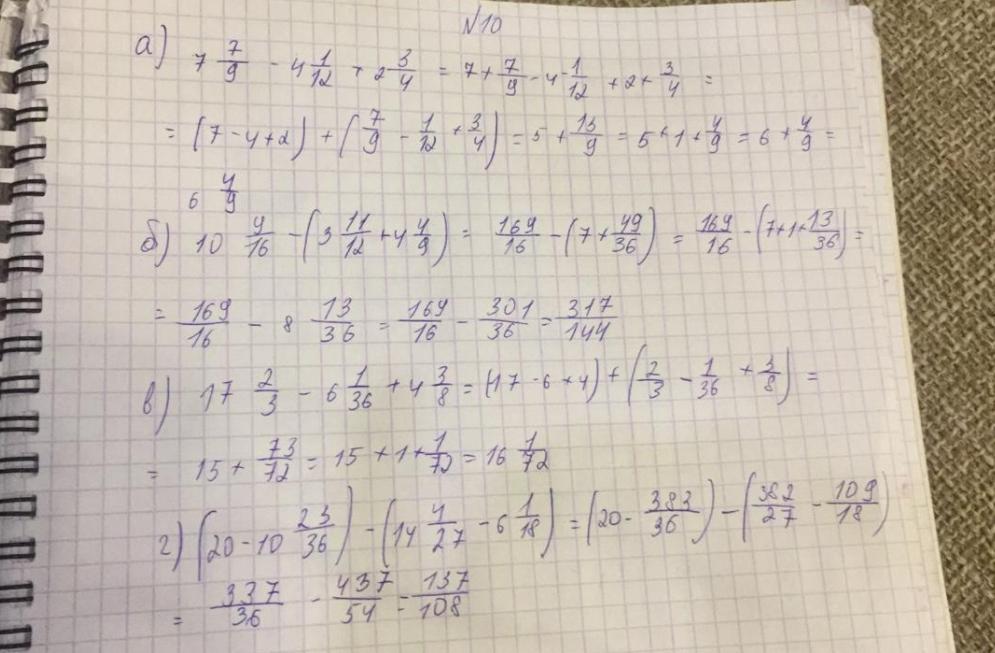 №10
а) 7 7/9 - 4 1/12 + 2 3/4 = 7 + 7/9 - 4 1/12 + 2 + 3/4 =
= (7 - 4 + 2) + (7/9 - 1/12 + 3/4) = 5 + 13/9 = 5 + 1 + 4/9 = 6 + 4/9 =
6 4/9
б) 10 9/16 - (3 11/12 + 4 4/9) = 169/16 - (7 + 49/36) = 169/16 - (7 + 1 + 13/36) =
= 169/16 - 8 13/36 = 169/16 - 301/36 = 317/144
в) 17 2/3 - 6 1/36 + 4 3/8 = (17 - 6 + 4) + (2/3 - 1/36 + 3/8) =
= 15 + 73/72 = 15 + 1 + 1/72 = 16 1/72
г) (20 - 10 23/36) - (14 4/27 - 6 1/18) = (20 - 383/36) - (382/27 - 109/18)
= 337/36 - 437/54 = 137/108